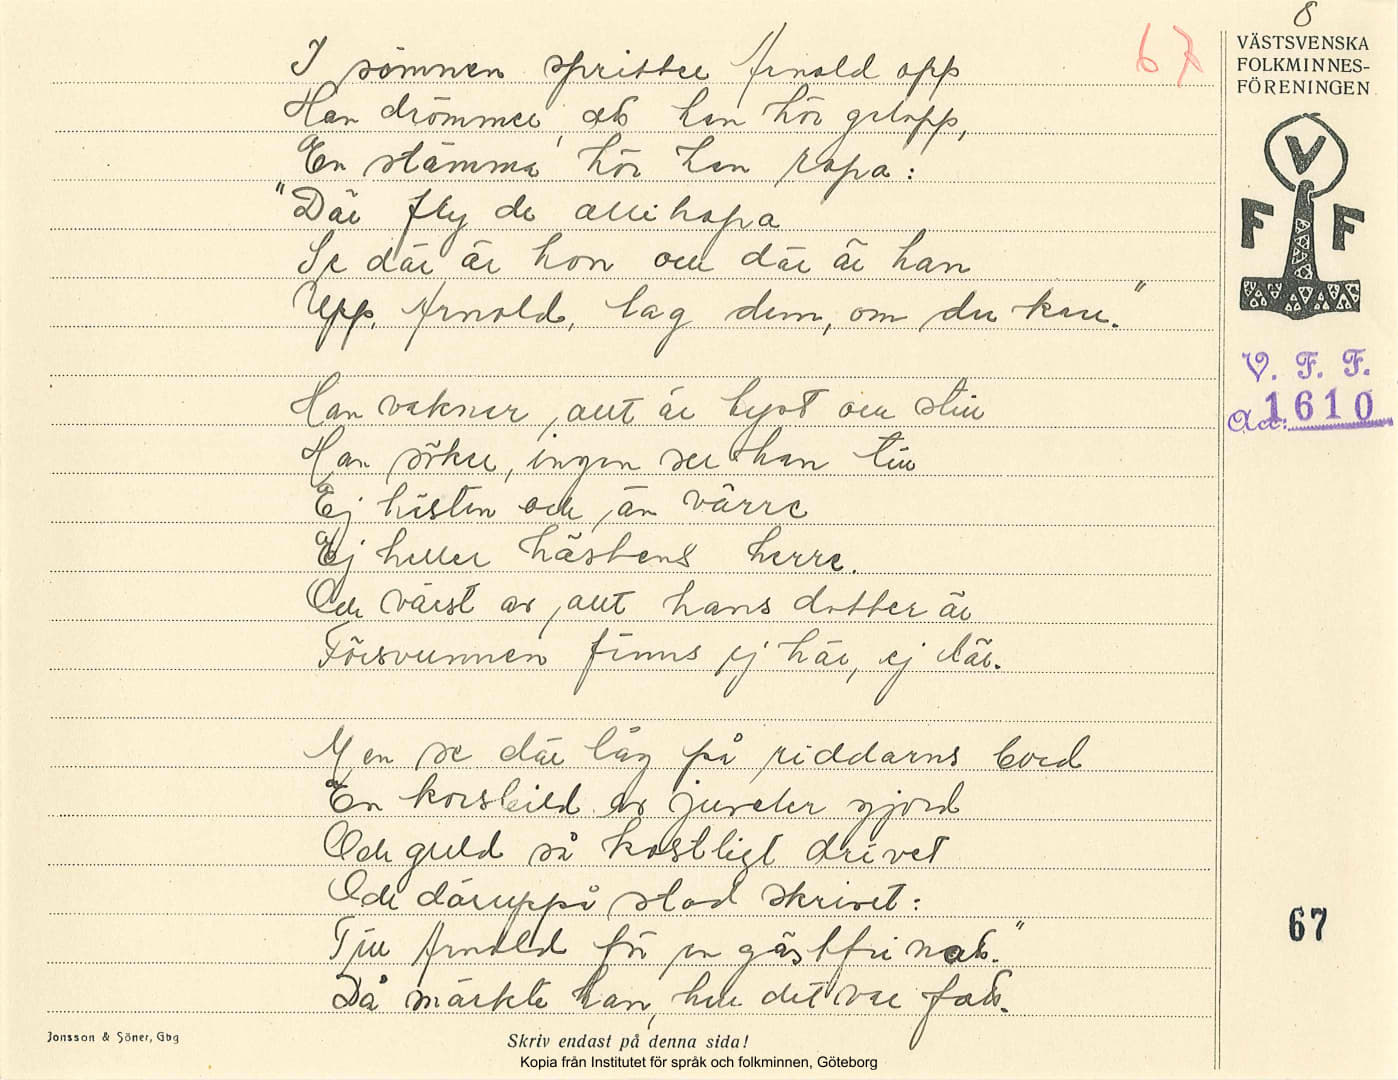 8
67
VÄSTSVENSKA
FOLKMINNES-
FÖRENINGEN
V
F F
V. F. F.
Acc: 1610
I sömnen spritter Arnold opp
Han drömmer, att han hör galopp,
En stämma hör han ropa:
"Där fly de allihopa
Se där är hon och där är han
Upp, Arnold, tag dem, om du kan."
Han vaknar, allt är tyst och still
Han söker, ingen ser han till
Ej hästen och, än värre
Ej heller hästens herre.
Och värst av allt hans dotter är
Försvunnen finns ej här, ej där.
Men se där låg på riddarns bord
En korsbild av juveler gjord
Och guld så kostligt drivet
Och däruppå stod skrivet:
Till Arnold för en gästfri natt."
Då märkte han, hur det var fatt.
67
Jonsson & Söner, Gbg
Skriv endast på denna sida!
Kopia från Institutet för språk och folkminnen, Göteborg